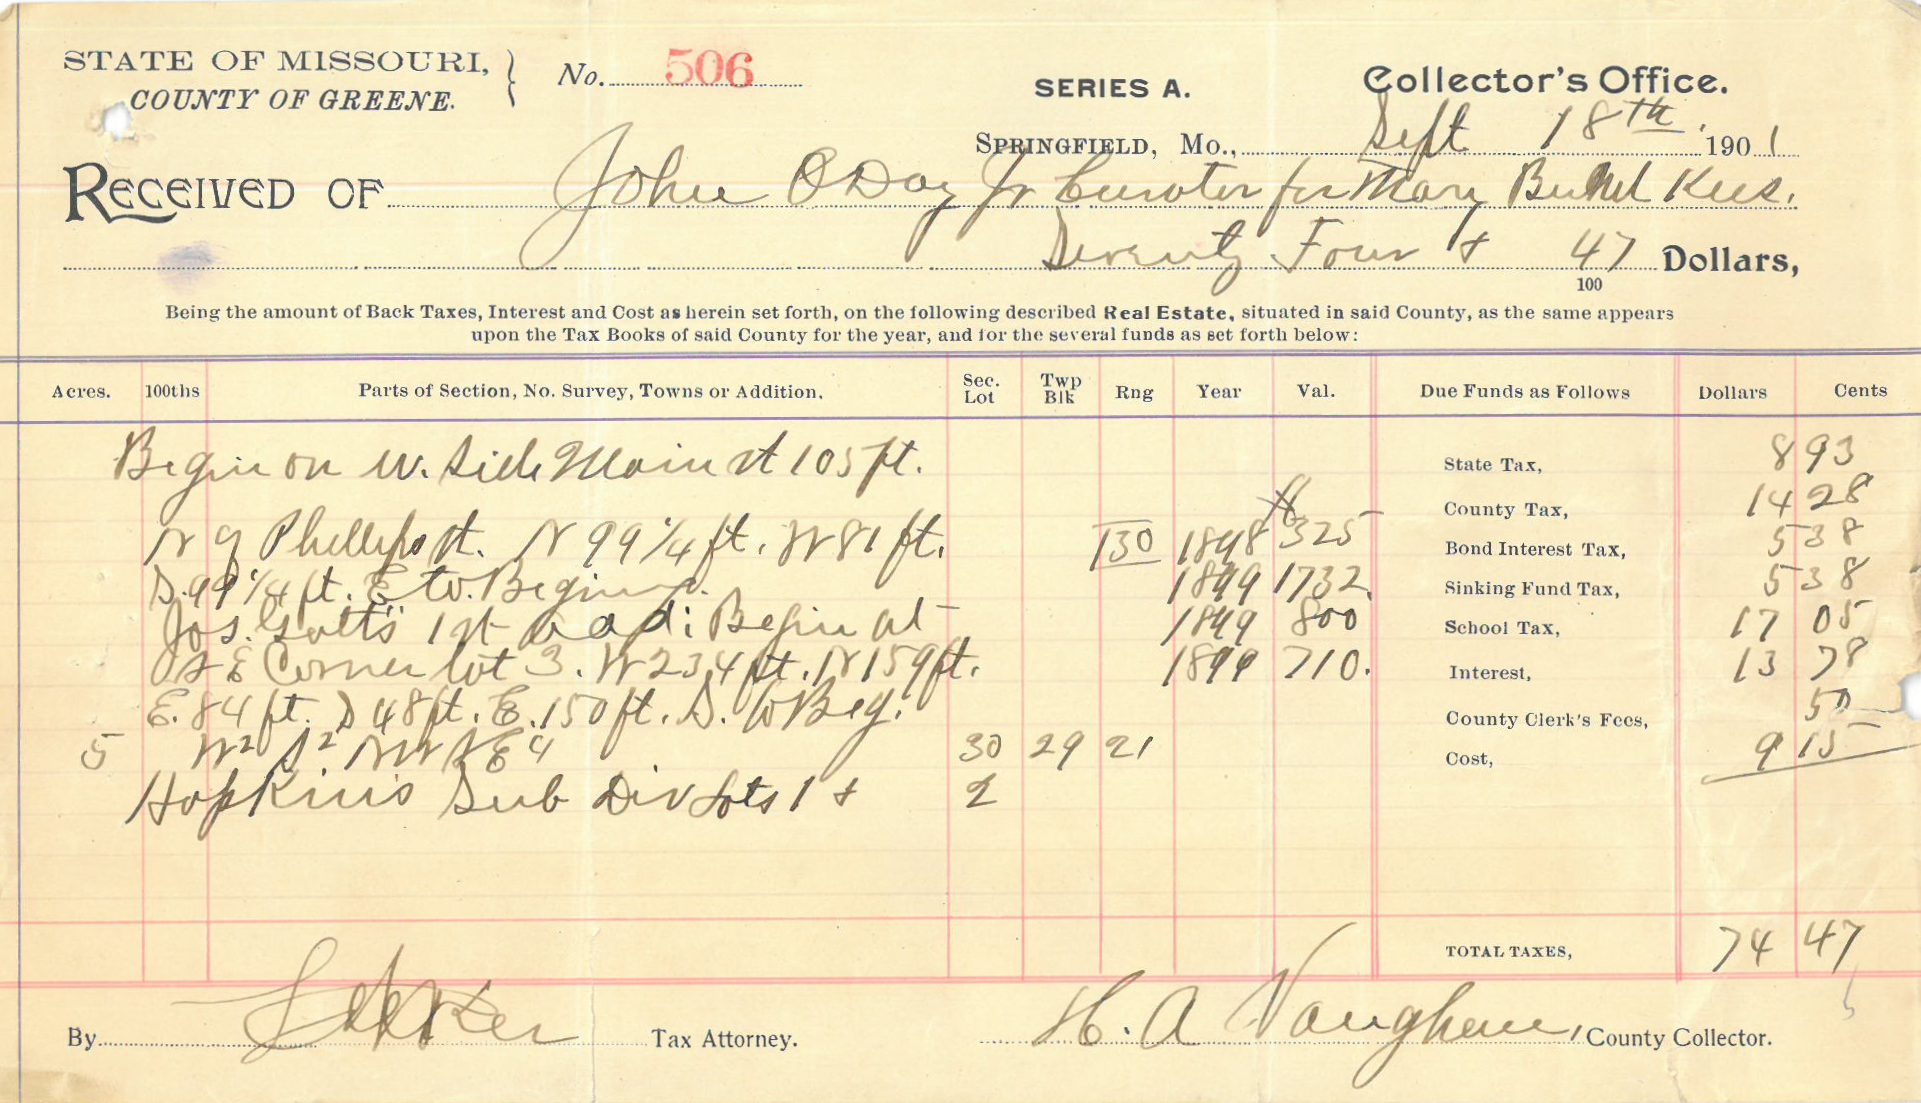 STATE OF MISSOURI,
COUNTY OF GREENE.
No. 506
SERIES A.
Collector's Office.
SPRINGFIELD, Mo., Sept 18th, 1901
RECEIVED OF John O Day Jr Curator for Mary
Seventy Four + 47/100 Dollars,
Being the amount of Back Taxes, Interest and Cost as herein set forth, on the following described Real Estate, situated in said County, as the same appears
upon the Tax Books of said County for the year, and for the several funds as set forth below:
Acres. 100ths Parts of Section, No. Survey, Towns or Addition, Sec. Lot Twp Blk Rng Year Val. Due Funds as Follows Dollars Cents
Begin on W. Side Main st 105 ft.
State Tax, 8 93
County Tax, 14 28
N of Phellips st. N 99 1/4 ft. W 81 ft. 130 1898 325
Bond Interest Tax, 5 38
S. 99 1/4 ft. E to Begin 1899 1732.
Sinking Fund Tax, 5 38
Jos. 1st add: Begin at 1899 800
School Tax, 17 05
S E Corner lot 3. W 234 ft. N 159 ft. 1899 710.
Interest, 13 78
E. 84 ft. S 48 ft. E. 150 ft. S. to Beg.
County Clerk's Fees, 50
5 W2 S2 NW SE4 30 29 21
Cost, 9 15
Hopkins Sub Div Lots 1 + 2
TOTAL TAXES, 74 47
By Tax Attorney.
H. A Vaughan, County Collector.